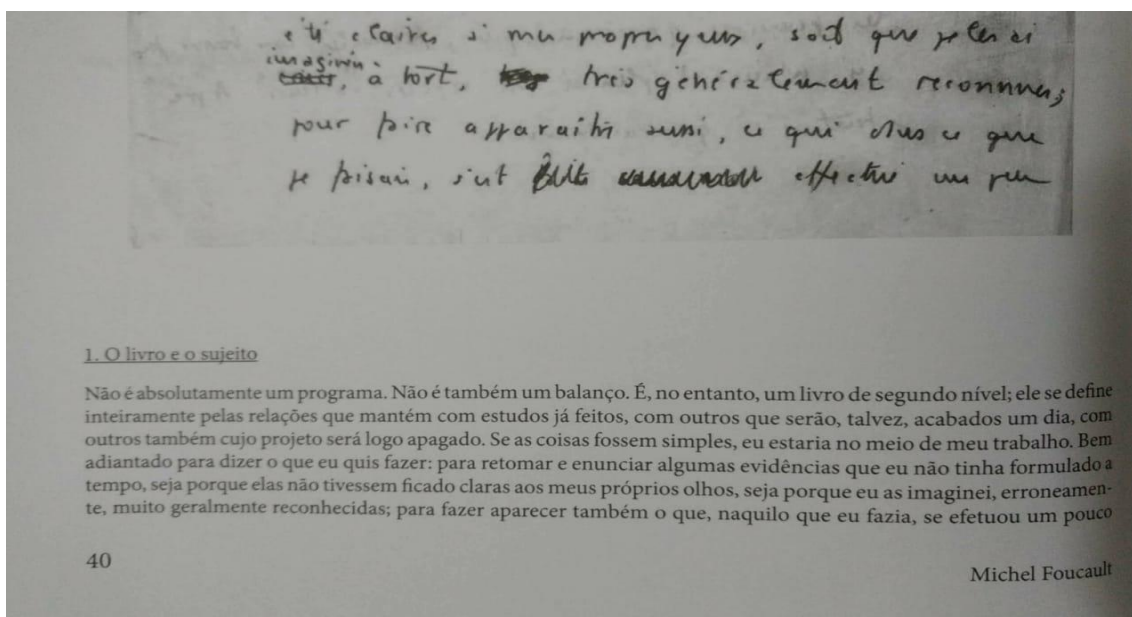 été claires à mes propres yeux, soit que je les ai
imaginé
à tort, très généralement reconnues;
pour faire apparaître aussi, ce qui dans ce que
je faisais, s'est effectué un peu
1. O livro e o sujeito
Não é absolutamente um programa. Não é também um balanço. É, no entanto, um livro de segundo nível; ele se define
inteiramente pelas relações que mantém com estudos já feitos, com outros que serão, talvez, acabados um dia, com
outros também cujo projeto será logo apagado. Se as coisas fossem simples, eu estaria no meio de meu trabalho. Bem
adiantado para dizer o que eu quis fazer: para retomar e enunciar algumas evidências que eu não tinha formulado a
tempo, seja porque elas não tivessem ficado claras aos meus próprios olhos, seja porque eu as imaginei, erroneamen-
te, muito geralmente reconhecidas; para fazer aparecer também o que, naquilo que eu fazia, se efetuou um pouco
40
Michel Foucault